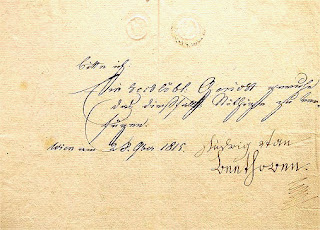 bitte ich
Ein Hochlöbl. Gericht geruhe
das dießfalls Nöthige zu ver
fügen.
Wien am 28. 9ber 1815. Ludwig van
Beethoven.